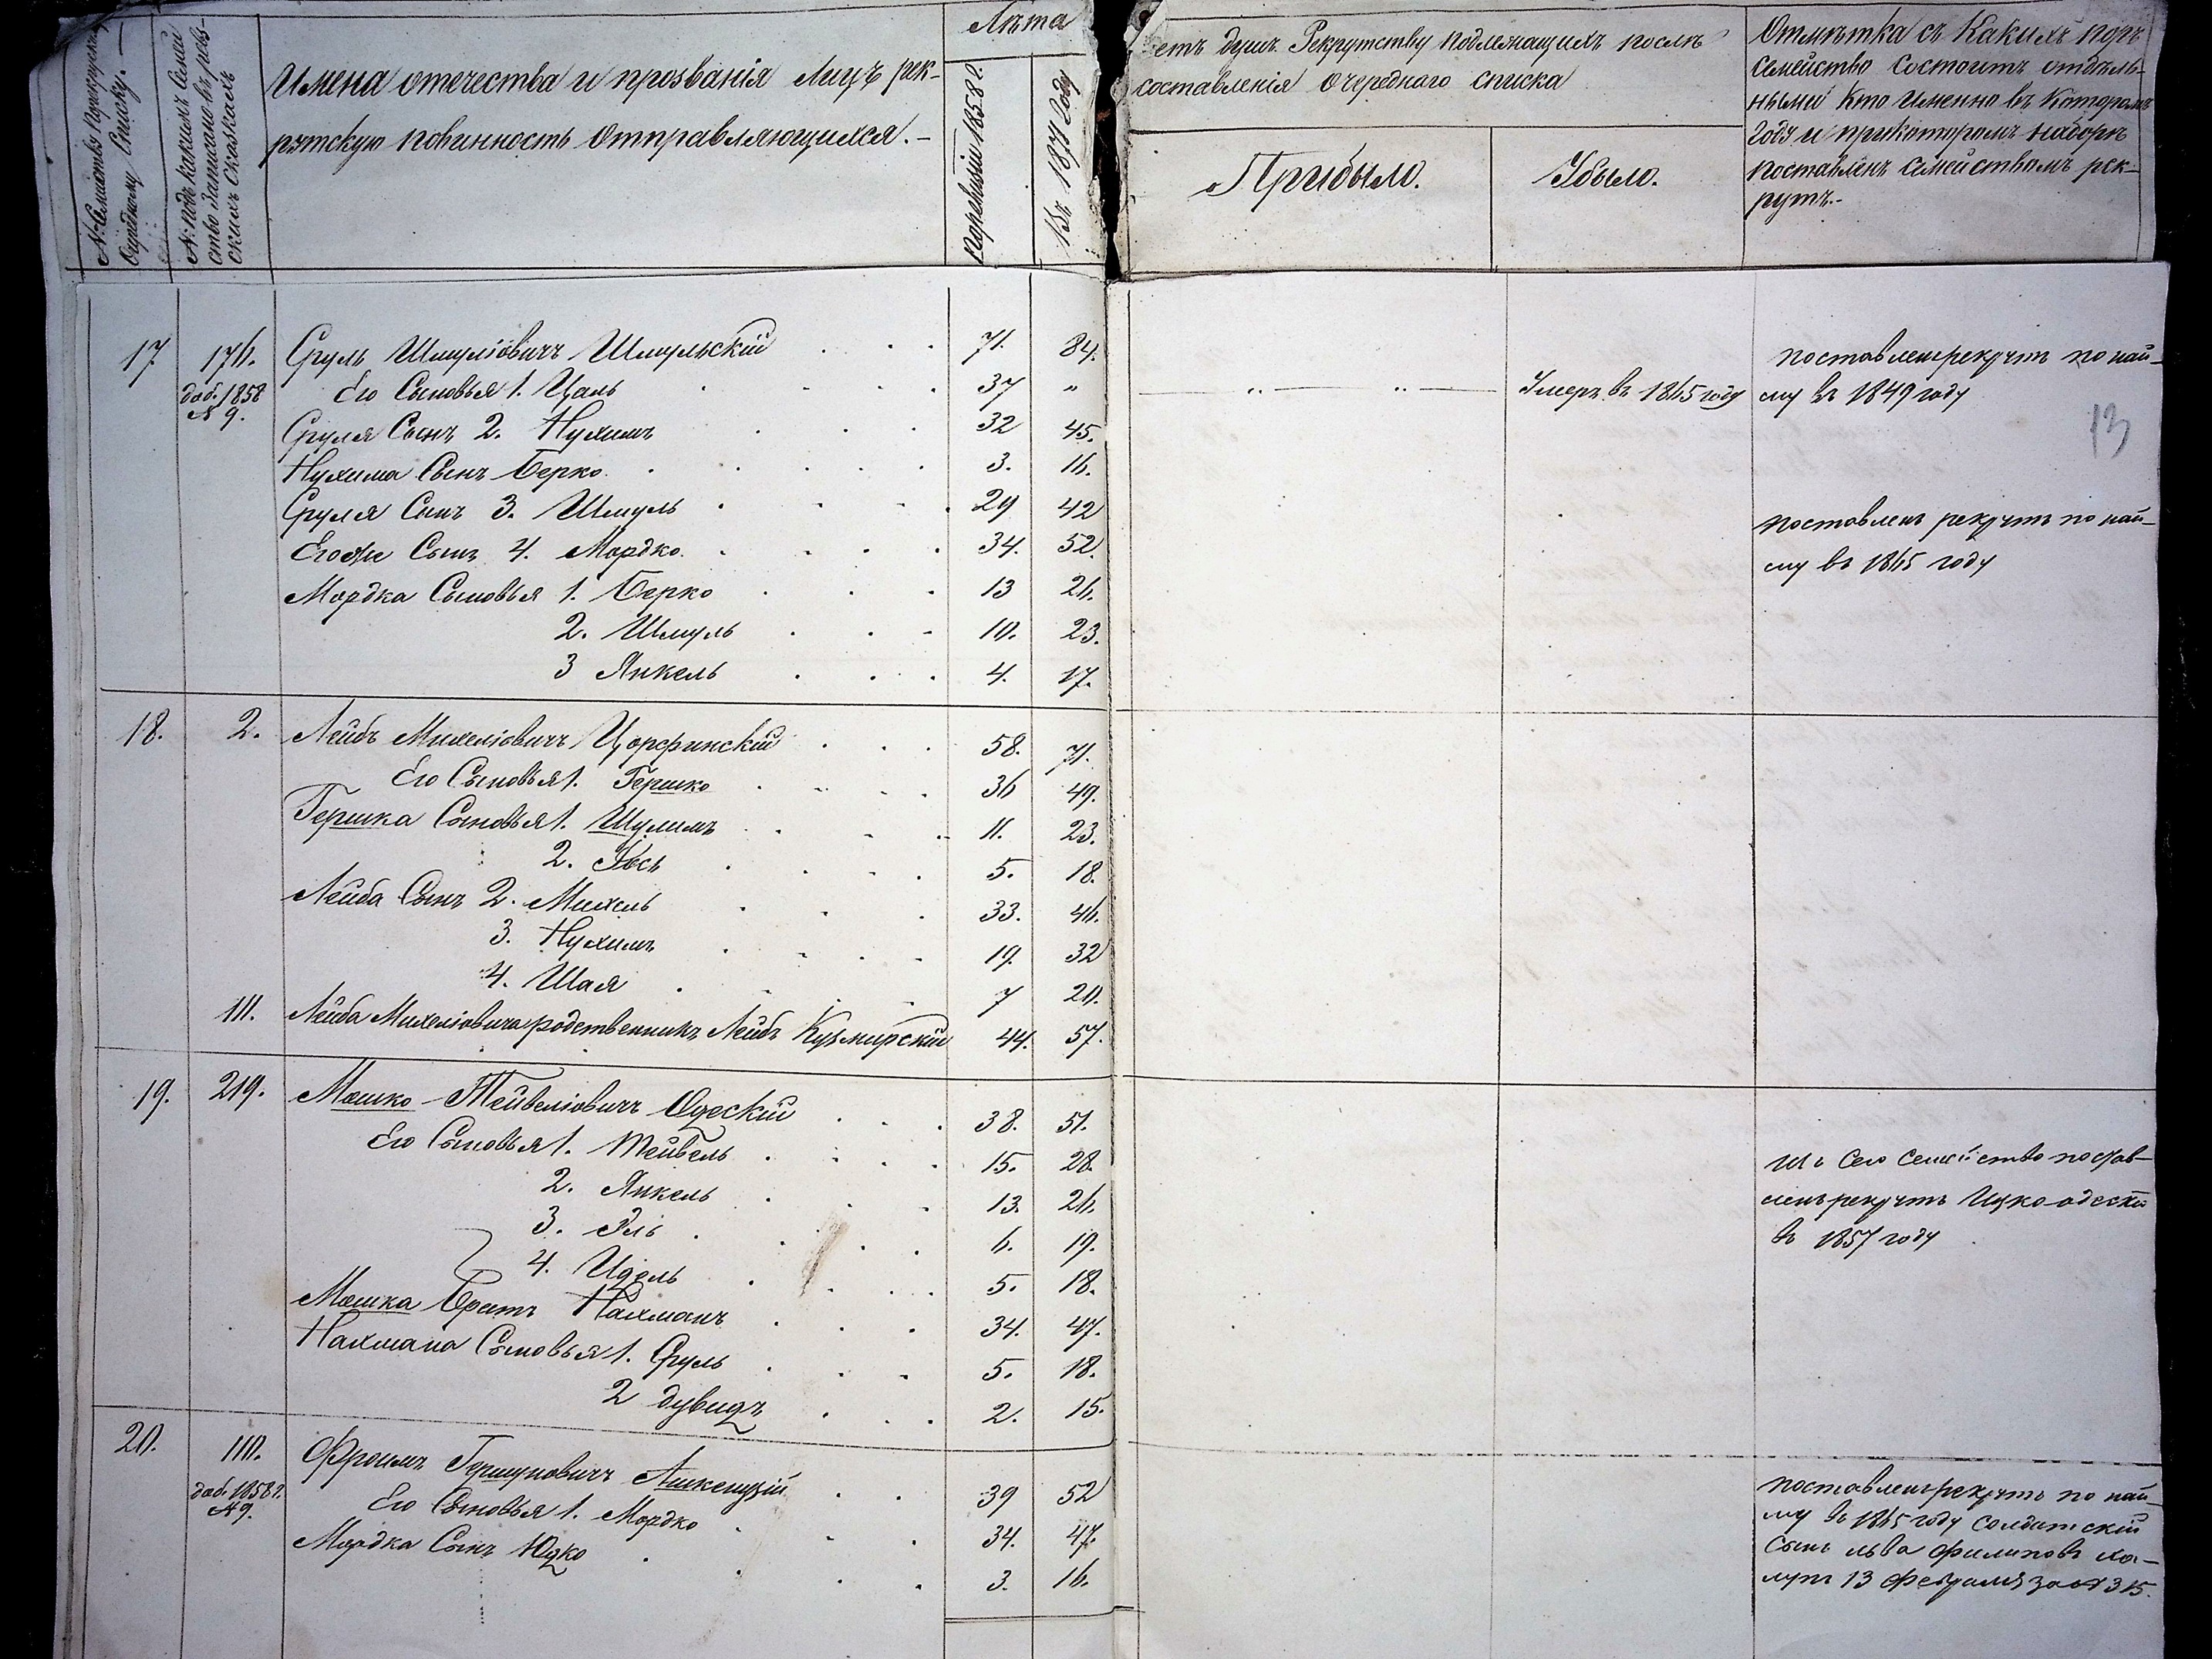 № Семейства по рекрутскому
Очередному Списку.
№ подъ какимъ Семей
ство Записано въ реви
скихъ Сказкахъ
Имена отечества и прозванія Лицъ рек-
рутскую повинность Отправляющихся.-
Лѣта
По ревизіи 1858 г.
Въ 1871 Году
етъ душъ Рекрутству подлежащихъ послѣ
составленія Очереднаго списка
Прибыло.
Убыло.
Отмѣтка съ Какихъ поръ
семейство состоитъ отдѣль-
нымъ Кто Именно въ Которомъ
Году и прикоторомъ наборѣ
поставленъ семействомъ рек-
рутъ.-
17 176. Сруль Шмуліовичъ Шмульскій 71. 84. поставленъ рекрутъ по най-
доб. 1858 Его Сыновья 1. Цаль 37 " " " Умеръ въ 1865 году му въ 1849 году
№ 9. Сруля Сынъ 2. Нухимъ 32 45. 13
Нухима Сынъ Берко 3. 16.
Сруля Сынъ 3. Шмуль 29 42 поставленъ рекрутъ по най-
Егоже Сынъ 4. Мордко. 34. 52. му въ 1865 году
Мордка Сыновья 1. Берко 13 26.
2. Шмуль 10. 23.
3 Янкель 4. 17.
18. 2. Лейбъ Михеліовичъ Цорфинскій 58. 71.
Его Сыновья 1. Гершко 36 49.
Гершка Сыновья 1. Шулимъ 11. 23.
2. Іось 5. 18.
Лейба Сынъ 2. Михель 33. 46.
3. Нухимъ 19. 32
4. Шая 7 20.
111. Лейба Михеліовича родственникъ Лейбъ Кузмирскій 44. 57.
19. 219. Мошко Тейвеліовичъ Одескій 38. 51.
Его Сыновья 1. Тейвель 15. 28. изъ Сего Семейство постав-
2. Янкель 13. 26. ленъ рекрутъ Ицко одескій
3. Эль 6. 19. въ 1857 году
4. Идель 5. 18.
Мошка Братъ Нахманъ 34. 47.
Нахмана Сыновья 1. Сруль 5. 18.
2 Дувидъ 2. 15.
20. 110. Фроимъ Гершуновичъ Ашкенузій 39 52 поставленъ рекрутъ по най-
доб. 1858 г. Его Сыновья 1. Мордко 34. 47. му въ 1865 году солдатскій
№ 9. Мордка Сынъ Юдко 3. 16. Сынъ льва Филиповъ
13 Февраля за № 315.